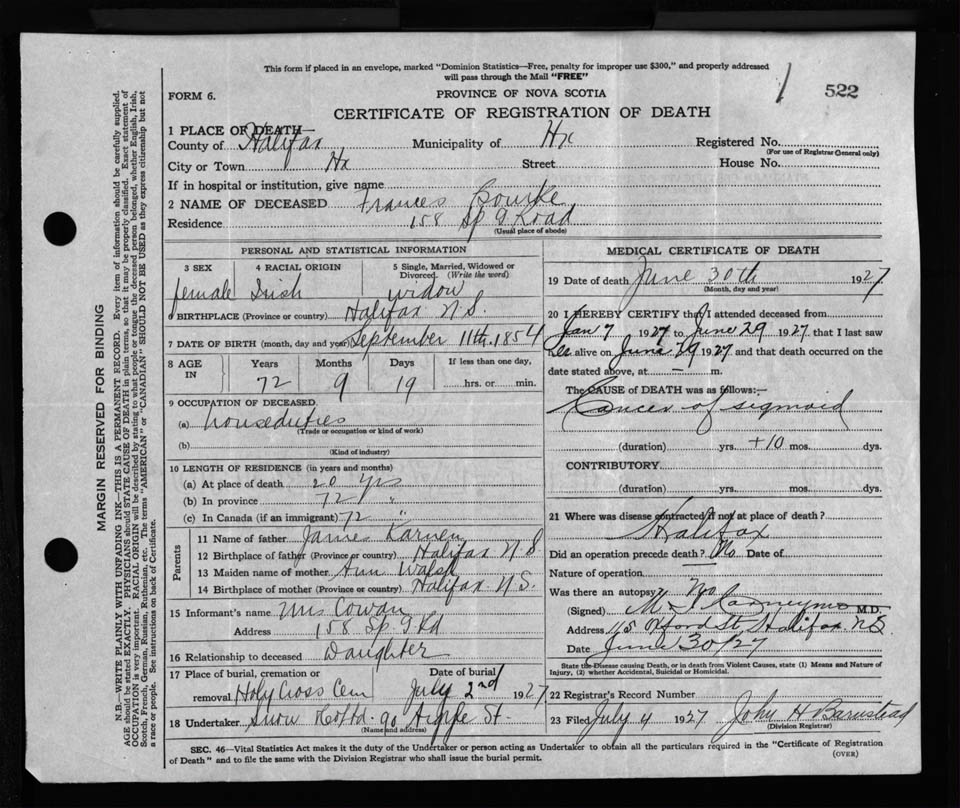 This form if placed in an envelope, marked "Dominion Statistics—Free, penalty for improper use $300," and properly addressed
will pass through the Mail "FREE"
1 522
FORM 6.
PROVINCE OF NOVA SCOTIA
CERTIFICATE OF REGISTRATION OF DEATH
1 PLACE OF DEATH—
County of Halifax Municipality of Hx Registered No.
(For use of Registrar General only)
City or Town Hx Street House No.
If in hospital or institution, give name
2 NAME OF DECEASED Frances Bourke
Residence 158 Sp G Road
(Usual place of abode)
PERSONAL AND STATISTICAL INFORMATION
3 SEX 4 RACIAL ORIGIN 5 Single, Married, Widowed or Divorced (Write the word)
female Irish widow
6 BIRTHPLACE (Province or country) Halifax N.S.
7 DATE OF BIRTH (month, day and year) September 11th. 1854
8 AGE IN Years Months Days If less than one day,
72 9 19 hrs. or min.
9 OCCUPATION OF DECEASED
(a) houseduties
(Trade or occupation or kind of work)
(b)
(Kind of industry)
10 LENGTH OF RESIDENCE (in years and months)
(a) At place of death 20 yrs
(b) In province 72 "
(c) In Canada (if an immigrant) 72 "
Parents
11 Name of father James
12 Birthplace of father (Province or country) Halifax N.S
13 Maiden name of mother Ann Walsh
14 Birthplace of mother (Province or country) Halifax N.S.
15 Informant's name Mrs Cowan
Address 158 Sp. G Rd
16 Relationship to deceased Daughter
17 Place of burial, cremation or removal Holy Cross Cem Date of burial July 2nd 1927
18 Undertaker Snow Co Ltd. 90 Argyle St.
(Name and address)
MEDICAL CERTIFICATE OF DEATH
19 Date of death June 30th 1927
(Month, day and year)
20 I HEREBY CERTIFY that I attended deceased from
Jan 7 1927 to June 29 1927 that I last saw
her alive on June 29 1927 and that death occurred on the
date stated above, at — m.
The CAUSE of DEATH was as follows:—
Cancer of sigmoid
(duration) yrs. +10 mos. dys.
CONTRIBUTORY
(duration) yrs. mos. dys.
21 Where was disease contracted if not at place of death?
Halifax
Did an operation precede death? No Date of
Nature of operation
Was there an autopsy? No
(Signed) M.D.
Address 115 Oxford St, Halifax. N.S.
Date June 30/27
State the Disease causing Death, or in death from Violent Causes, state (1) Means and Nature of
Injury, and (2) whether Accidental, Suicidal or Homicidal.
22 Registrar's Record Number
23 Filed July 4 1927 John H Barnstead
(Division Registrar)
SEC. 46—Vital Statistics Act makes it the duty of the Undertaker or person acting as Undertaker to obtain all the particulars required in the "Certificate of Registration
of Death" and to file the same with the Division Registrar who shall issue the burial permit.
(OVER)
MARGIN RESERVED FOR BINDING
N.B.—WRITE PLAINLY WITH UNFADING INK—THIS IS A PERMANENT RECORD. Every item of information should be carefully supplied.
AGE should be stated EXACTLY. PHYSICIANS should STATE CAUSE OF DEATH in plain terms, so that it may be properly classified. Exact statement of
OCCUPATION is very important. RACIAL ORIGIN will be described by stating to what people or tongue the deceased person belonged, whether English, Irish,
Scotch, French, German, Russian, Ruthenian, etc. The terms "AMERICAN" or "CANADIAN" SHOULD NOT BE USED as they express citizenship but not
a race or people. See instructions on back of Certificate.